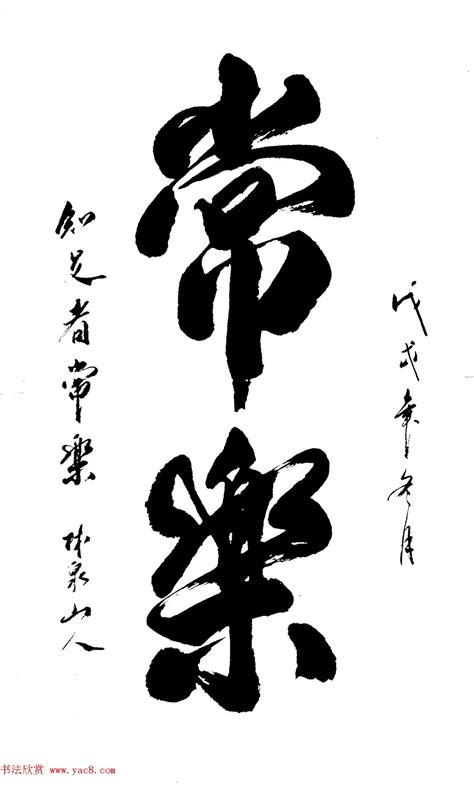 戊戌年冬月
常樂
知足者常樂 林泉山人
书法欣赏 www.yac8.com